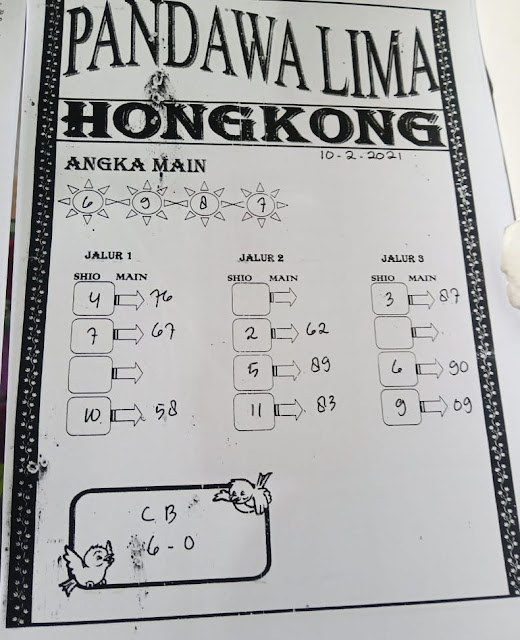 PANDAWA LIMA
HONGKONG
10-2-2021
ANGKA MAIN
6 9 8 7
JALUR 1 JALUR 2 JALUR 3
SHIO MAIN SHIO MAIN SHIO MAIN
4 76 3 87
7 67 2 62
5 89 6 90
10 58 11 83 9 09
C B
6 - 0